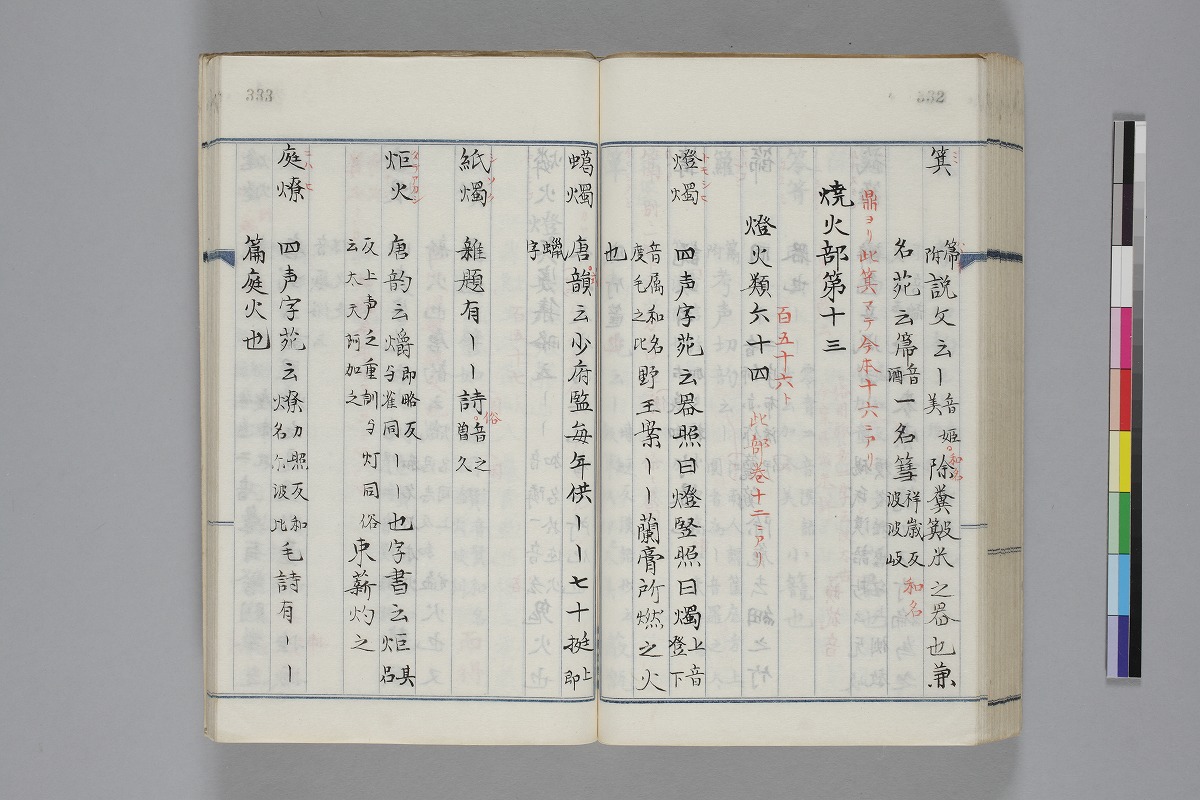 332
箕 ミ
説文云ー音姫美 和名 除糞簸米之器也兼
名苑云箒音酒一名篲祥歳反波波岐 和名
鼎ヨリ此箕マテ今本十六ニアリ
焼火部第十三
百五十六ト
燈火類六十四 此部巻十二ニアリ
燈燭 トモシヒ 四声字苑云器照曰燈竪照曰燭上音登下
音属和名度毛之比野王案ーー蘭膏所燃之火
也
333
蠟燭 唐韻云少府監毎年供ーー七十挺上即
蠟字
紙燭 シソク 雑題有ーー詩 俗音之曽久
炬火 タチアカシ 唐韵云爝即略反与雀同ーー也字書云炬其呂
反上声之重訓与灯同俗云太天阿加之束薪灼之
庭燎 ニハヒ 四声字苑云燎力照反和名尓波比毛詩有ーー
篇庭火也